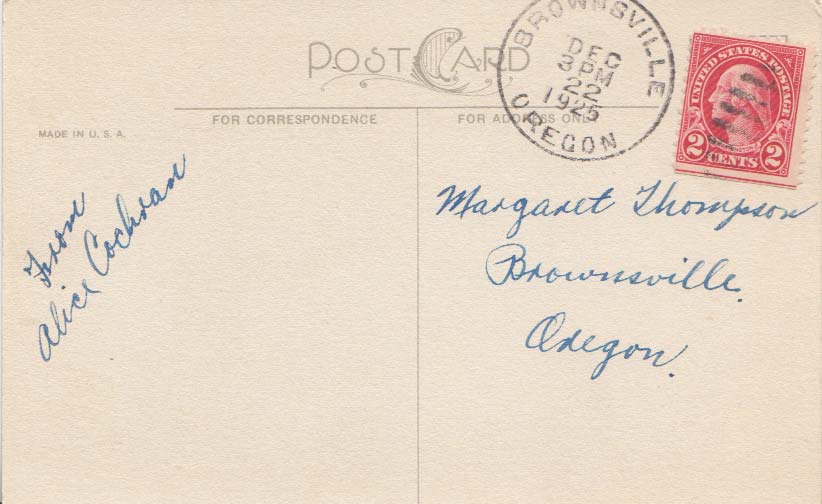 POST CARD
BROWNSVILLE
DEC
3 PM
22
1925
OREGON
UNITED STATES POSTAGE
2 CENTS 2
FOR CORRESPONDENCE
FOR ADDRESS ONLY
MADE IN U. S. A.
From
Alice Cochran
Margaret Thompson
Brownsville.
Oregon.